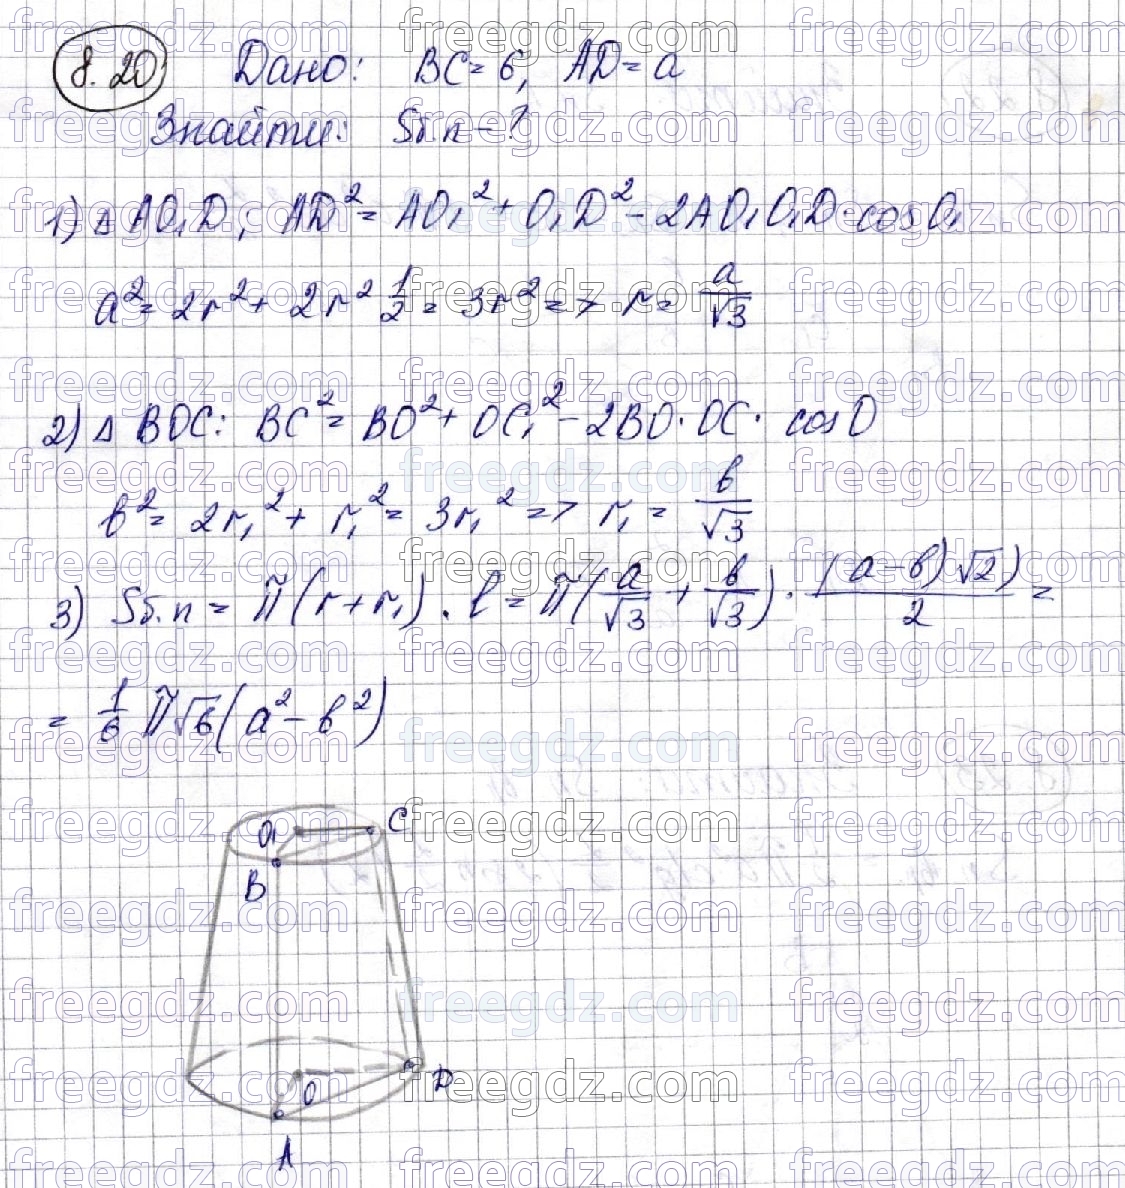 8.20 Дано: BC = в, AD = a
Знайти: Sб.п - ?
1) Δ AO₁D; AD² = AO₁² + O₁D² - 2AO₁O₁D·cosO₁
a² = 2r² + 2r² 1/2 = 3r² => r = a/√3
2) Δ BOC: BC² = BO² + OC₁² - 2BO·OC· cosO
в² = 2r₁² + r₁² = 3r₁² => r₁ = в/√3
3) Sб.п = π(r+r₁)·l = π(a/√3 + в/√3)·((a-в)√2)/2 =
= 1/6 π√6(a² - в²)
O₁ C
B
O D
A
freegdz.com